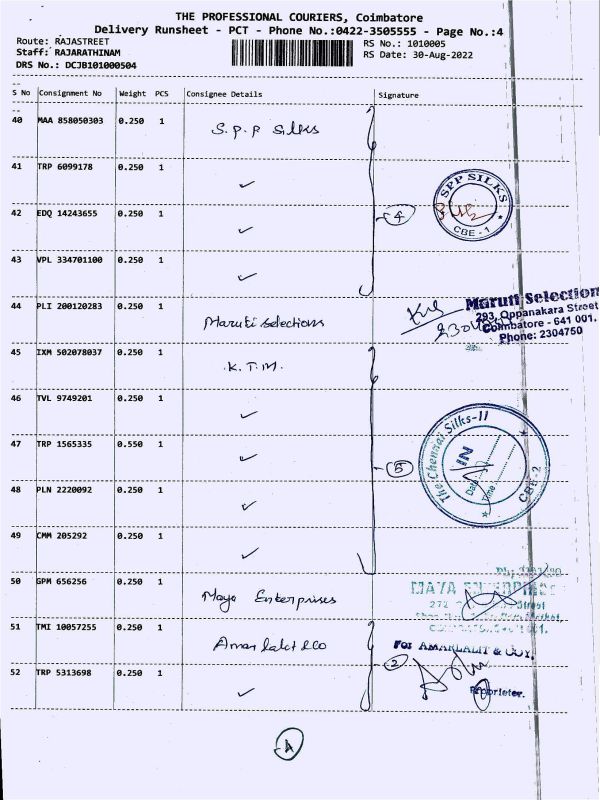 THE PROFESSIONAL COURIERS, Coimbatore
Delivery Runsheet - PCT - Phone No.:0422-3505555 - Page No.:4
Route: RAJASTREET RS No.: 1010005
Staff: RAJARATHINAM RS Date: 30-Aug-2022
DRS No.: DCJB101000504
S No Consignment No Weight PCS Consignee Details Signature
40 MAA 858050303 0.250 1 S.P.P Silks
41 TRP 6099178 0.250 1 ✓
SPP SILKS
CBE - 1
42 EDQ 14243655 0.250 1 ✓ 4
43 VPL 334701100 0.250 1 ✓
44 PLI 200120283 0.250 1 Maruti Selections
Maruti Selection
293, Oppanakara Street
Coimbatore - 641 001.
Phone: 2304750
45 IXM 502078037 0.250 1 K.T.M.
46 TVL 9749201 0.250 1 ✓
47 TRP 1565335 0.550 1 ✓ 5
The Chennai Silks-II
IN
Date :
Time :
CBE-2
48 PLN 2220092 0.250 1 ✓
49 CMM 205292 0.250 1 ✓
50 GPM 656256 0.250 1 Maya Enterprises
MAYA
272 Street
51 TMI 10057255 0.250 1 Amar lalit & Co
For AMARLALIT & COY.
52 TRP 5313698 0.250 1 ✓ 2
Proprietor.
A